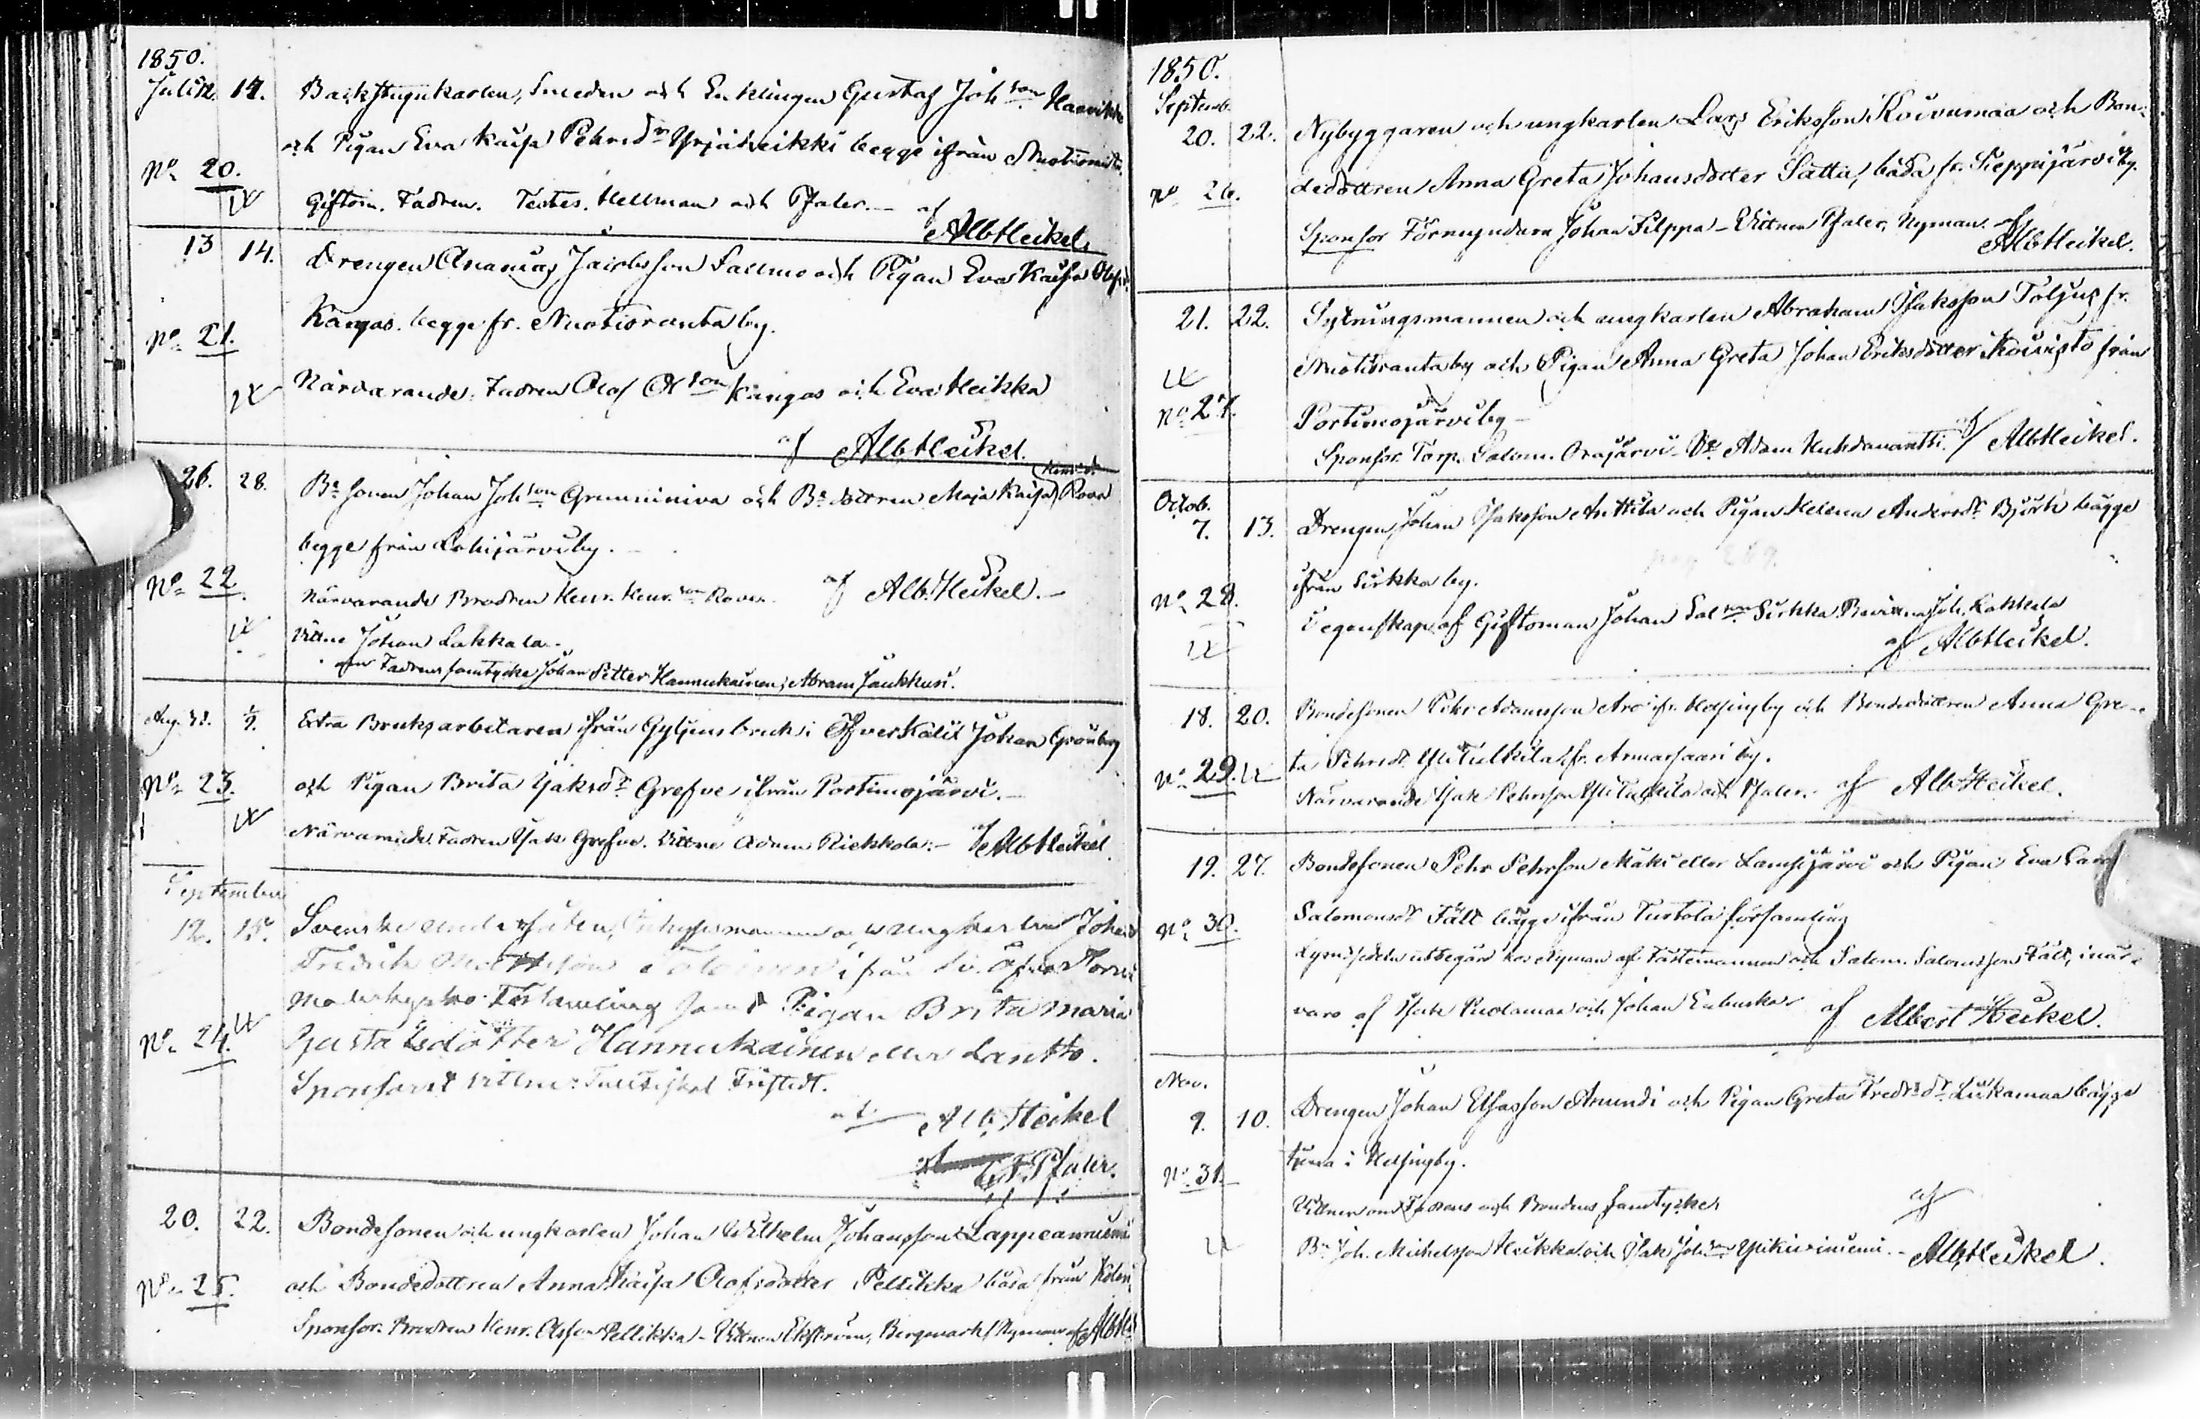 1850.
Julii 12. 14. Backstugukarlen, Smeden och Enklingen Gustaf Joh:son
och Pigan Eva Kaisa Pehrsdr Yrjänheikki begge ifrån
No 20. Giftom. Fadren. Testes. Hellman och Pfaler. — af
AlbHeikel.
13 14. Drengen Ananias Jacobsson Salmo och Pigan Eva Kaisa
Kangas. begge fr. Muotioranta by.
No 21.
Närvarande: Fadren Olof Ol:son Kangas och Eva Heikka
af AlbHeikel.
26. 28. Be sonen Johan Joh:son och Be dottren Maja Kaisa Rova
begge från Lohijärvi by.
No 22. Närvarande Brodren Henr. Henr:son Rova. af Alb.Heikel. —
Vittne Johan Lakkala. —
om Fadrens samtycke Johan Petter Hannukainen, Abram
Aug. 31. 1/9. Extra Bruksarbetaren ifrån Gyljens bruk i Öfver Kalix Johan Grönberg
No 23. och Pigan Brita Isaksdr Grefve ifrån Portimojärvi. —
Närvarande Fadren Isak Grefve. Vittne Adam Riekkola. — af AlbHeikel.
September
12. 15. Svenske undersåten, och ungkarlen Johan
Fredrik ifrån Öfver Torne
moderkyrko Församling samt Pigan Brita Maria
No 24. Gustafsdotter Hannukainen eller Lantto.
Sponsor & vittne: Fristedt.
af Alb. Heikel
Pfaler.
20. 22. Bondesonen och ungkarlen Johan Wilhelm Johansson Lappeanniemi
No 25. och Bondedottren Anna Kaisa Olofsdotter Pellikka båda från Kolari
Sponsor. Brodren Henr. Olsson Pellikka — Vittnen Ekström, Nyman af AlbHei
1850.
Septemb.
20. 22. Nybyggaren och ungkarlen Lars Eriksson Koivumaa och Bon-
No 26. dedottren Anna Greta Johansdotter Satta, båda fr. Sieppijärvi by.
Sponsor Förmyndare Johan Filppa — Vittnen Pfaler, Nyman. af
AlbHeikel.
21. 22. Sytningsmannen och ungkarlen Abraham Isaksson Toljus fr.
Muotioranta by och Pigan Anna Greta Johan Eriksdotter Koivisto från
No 27. Portimojärvi by —
Sponsor. Torp. Salom. Orajärvi. Adam af AlbHeikel.
Octob.
7. 13. Drengen Johan Isaksson Anttila och Pigan Helena Andersdr Björk bägge
No 28. ifrån Sirkka by.
I egenskap af Giftoman Johan Sal:son Sirkka. Joh. Lakkala
af AlbHeikel.
18. 20. Bondesonen Pehr Adamsson Aro fr. Helsingby och Bondedottren Anna Gre-
No 29. ta Pehrsdr Ylitulkila fr. Armassaari by.
Närvarande Isak Pehrsson Ylitulkila och Pfaler. af Alb.Heikel.
19. 27. Bondesonen Pehr Pehrsson Mäki eller Lamsijärvi och Pigan Eva Carol
No 30. Salomonsdr Fält bägge ifrån Turtola församling
Lysnsedeln utbegärd hos Nyman af Fästemannen och Salom. Salomsson Fält, i när-
varo af Isak Pudamaa och Johan af Albert Heikel.
Nov.
9. 10. Drengen Johan Eliasson Anundi och Pigan Greta Fredrsdr Liikamaa bägge
No 31. tjena i Helsingby.
Vittnen om Fadrens och Bondens samtycke,
Be Joh. Michelsson Heikka och Isak Joh:son Ylikurinniemi. — af
AlbHeikel.